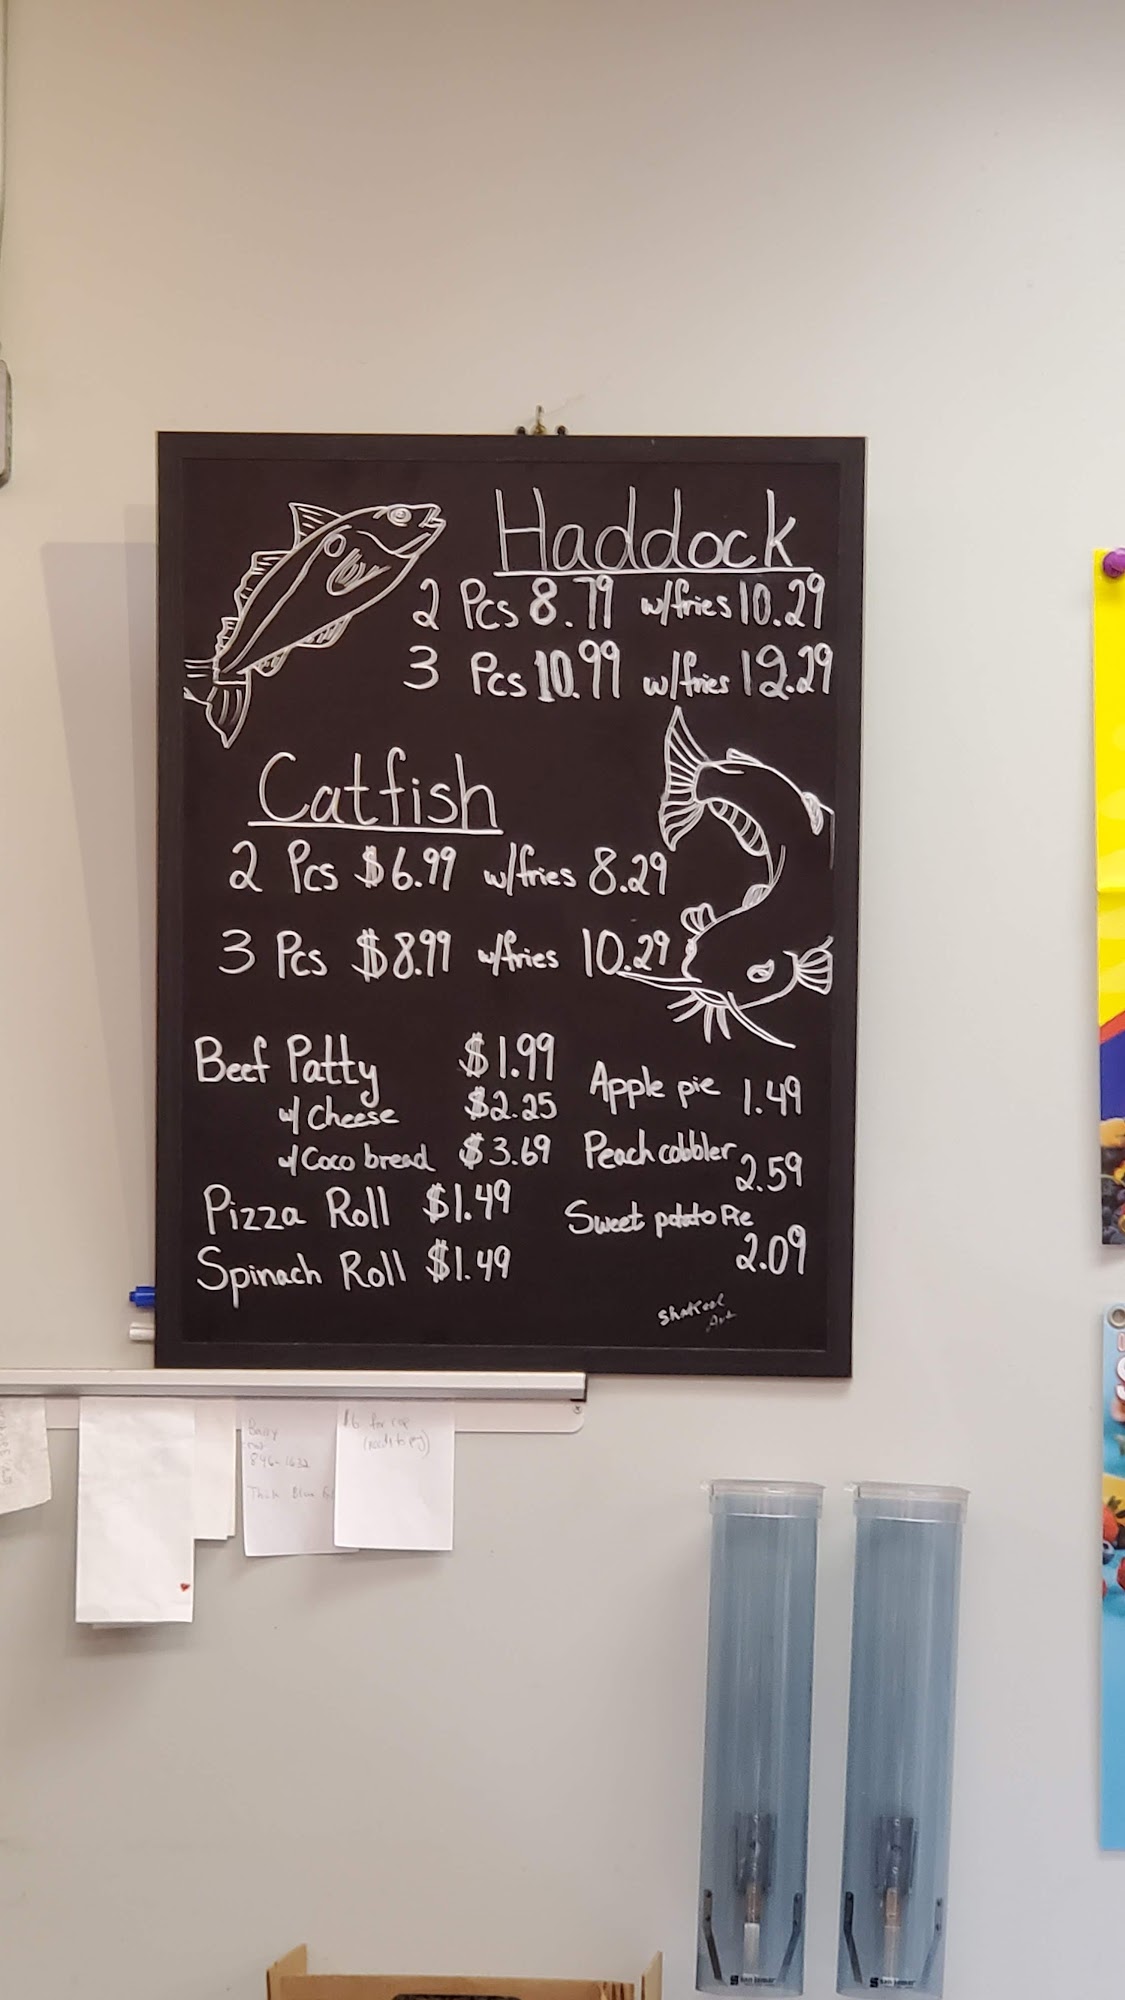 Haddock
2 Pcs 8.79 w/fries 10.29
3 Pcs 10.99 w/fries 12.29
Catfish
2 Pcs $6.99 w/fries 8.29
3 Pcs $8.99 w/fries 10.29
Beef Patty $1.99
w/ Cheese $2.25
w/ Coco bread $3.69
Pizza Roll $1.49
Spinach Roll $1.49
Apple pie 1.49
Peach cobbler
2.59
Sweet potato Pie
2.09
Shakeel
Art
$6 for cup
san jamar
san jamar